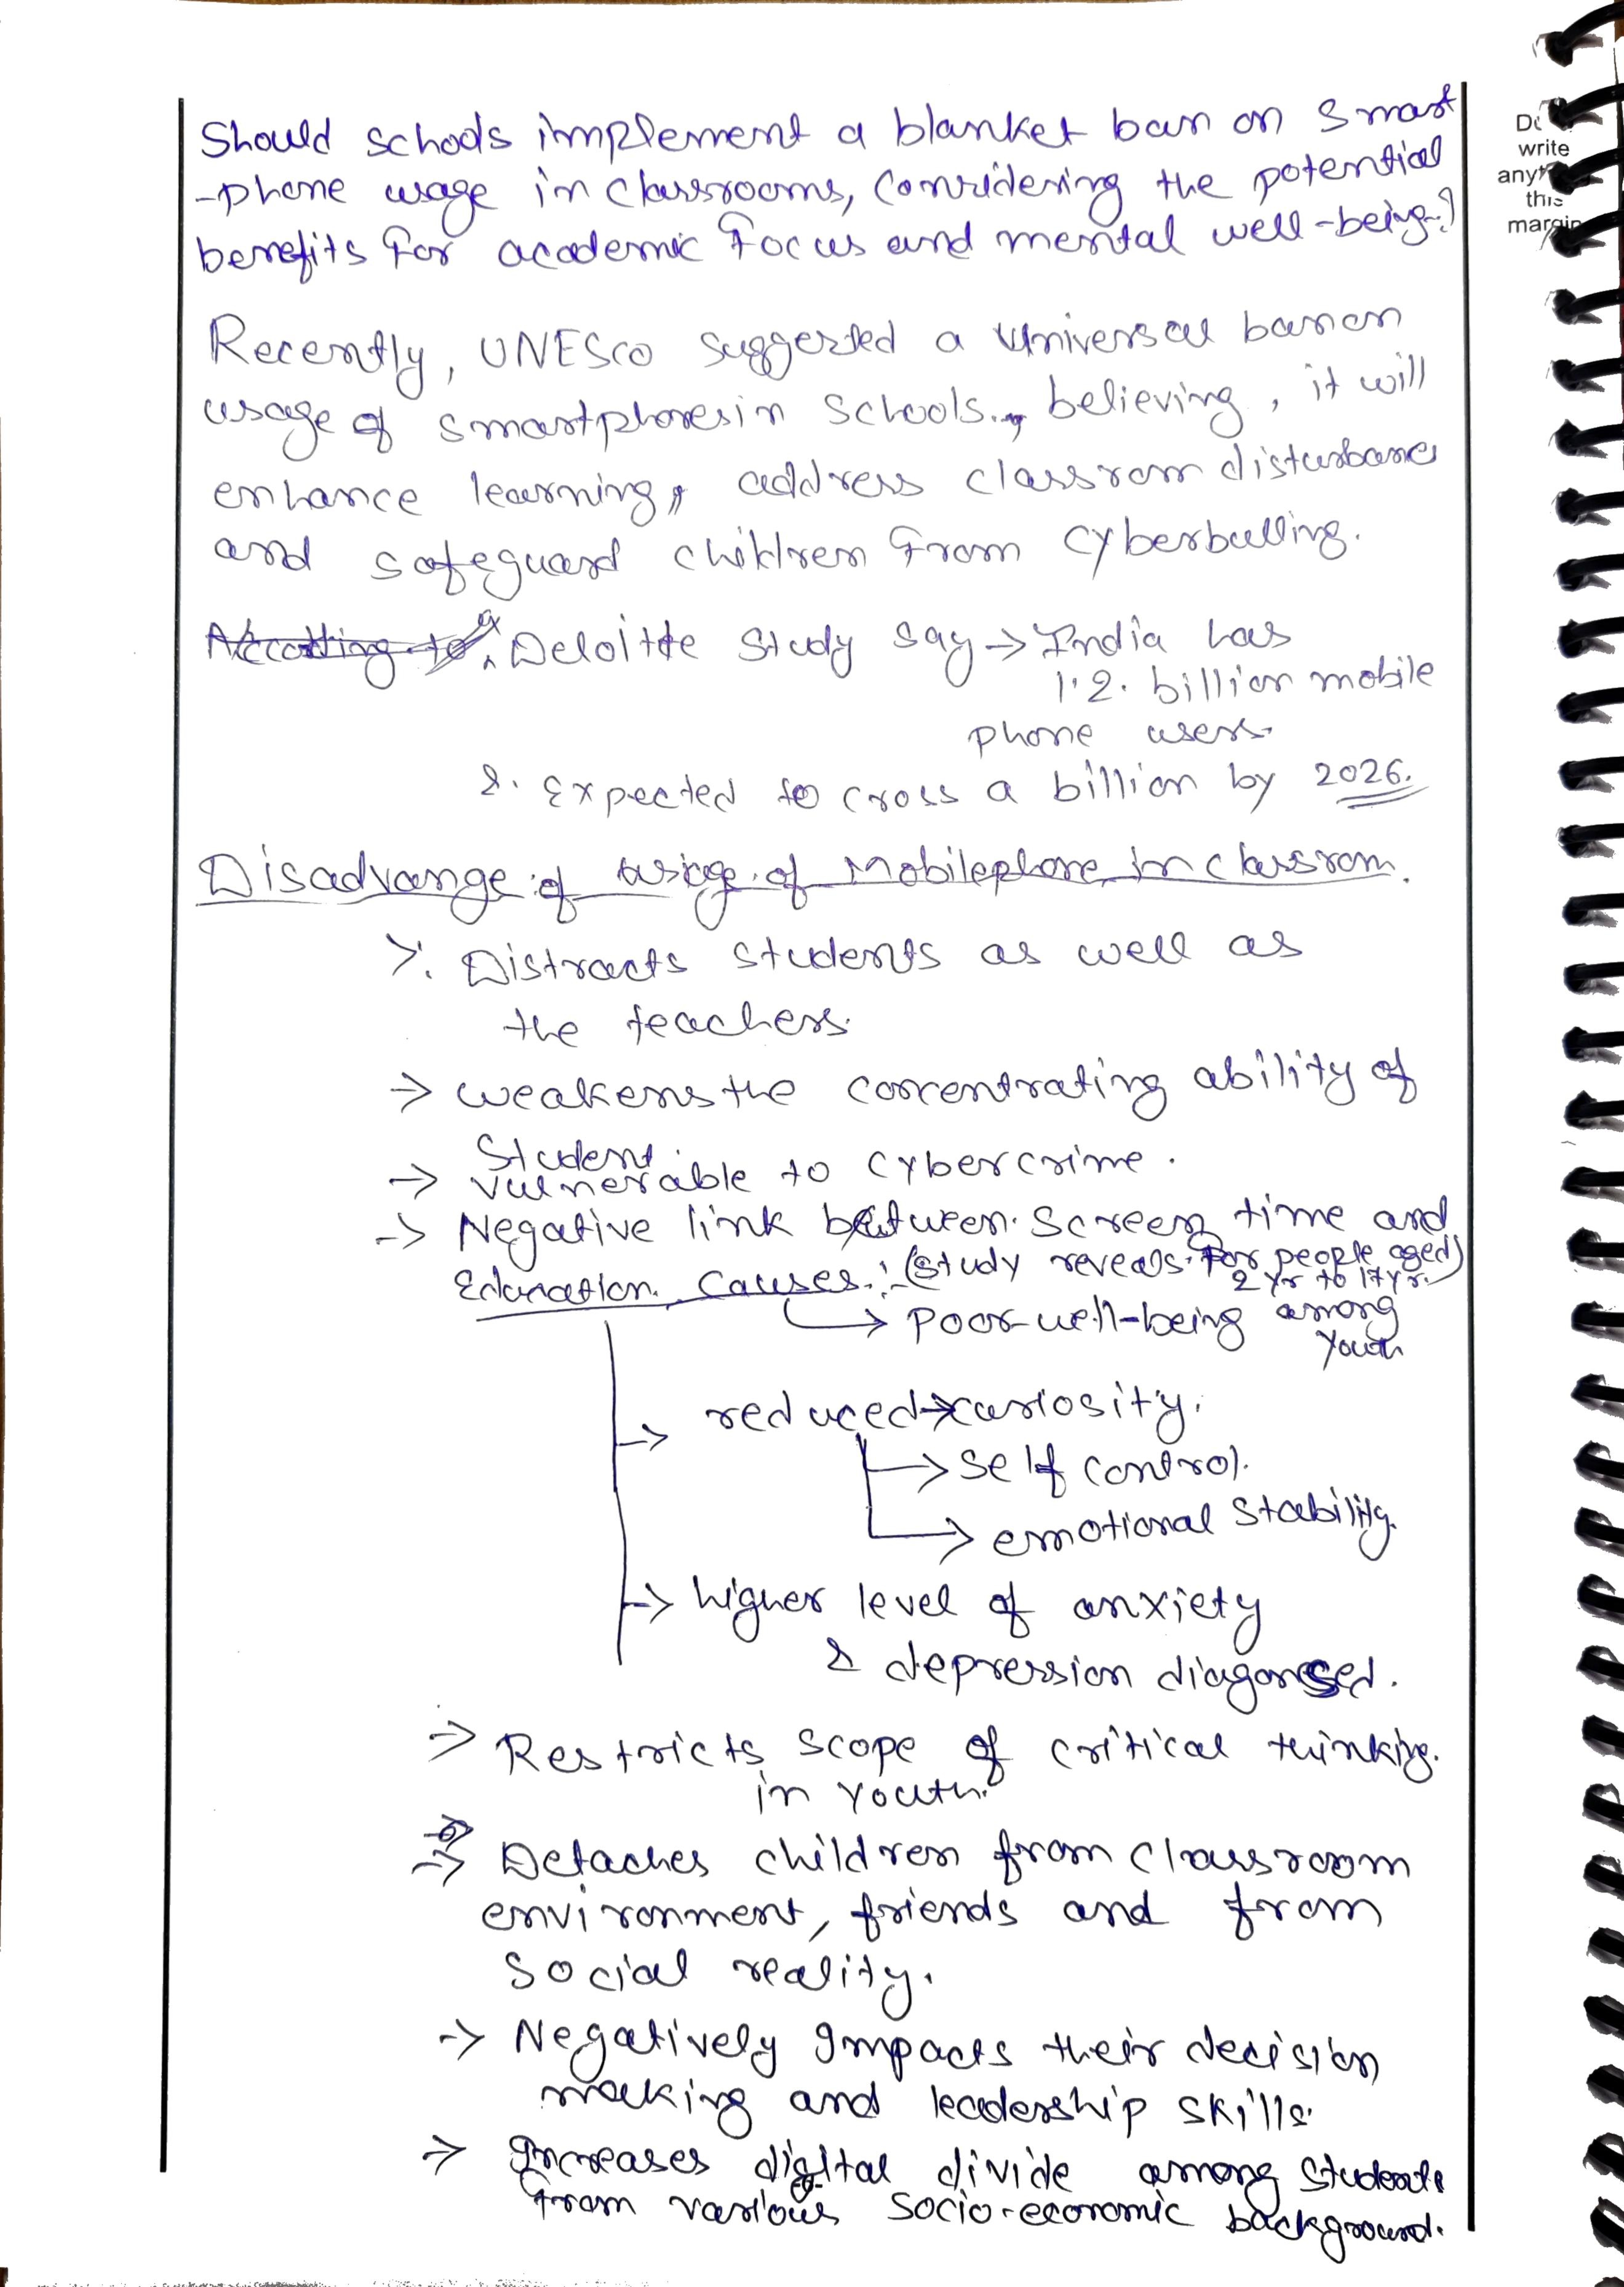 Should schools implement a blanket ban on Smart
-phone usage in classrooms, Considering the potential
benefits for academic focus and mental well-being?
Do
write
any
this
margin
Recently, UNESCO suggested a universal ban on
usage of smartphones in schools., believing, it will
enhance learning, address classrom disturbance
and safeguard children from cyberbulling.
According to a Deloitte Study say → India has
1.2. billion mobile
phone users.
&. Expected to cross a billion by 2026.
Disadvange of usage of Mobilephone in classrom.
>. Distracts students as well as
the teachers.
→ weakens the concentrating ability of
Student.
→ vulnerable to cybercrime.
→ Negative link between screen time and
Education causes: (study reveals for people aged)
2 yr to 17 yr.
→ poor well-being among
youth
→ reduced → curiosity.
→ self control.
→ emotional stability.
→ higher level of anxiety
& depression diagonsed.
→ Restricts scope of critical thinking.
in youth.
→ Detaches children from classroom
environment, friends and from
social reality.
→ Negatively Impacts their decision
making and leadership skills.
→ Increases digital divide among students
from various socio-economic background.